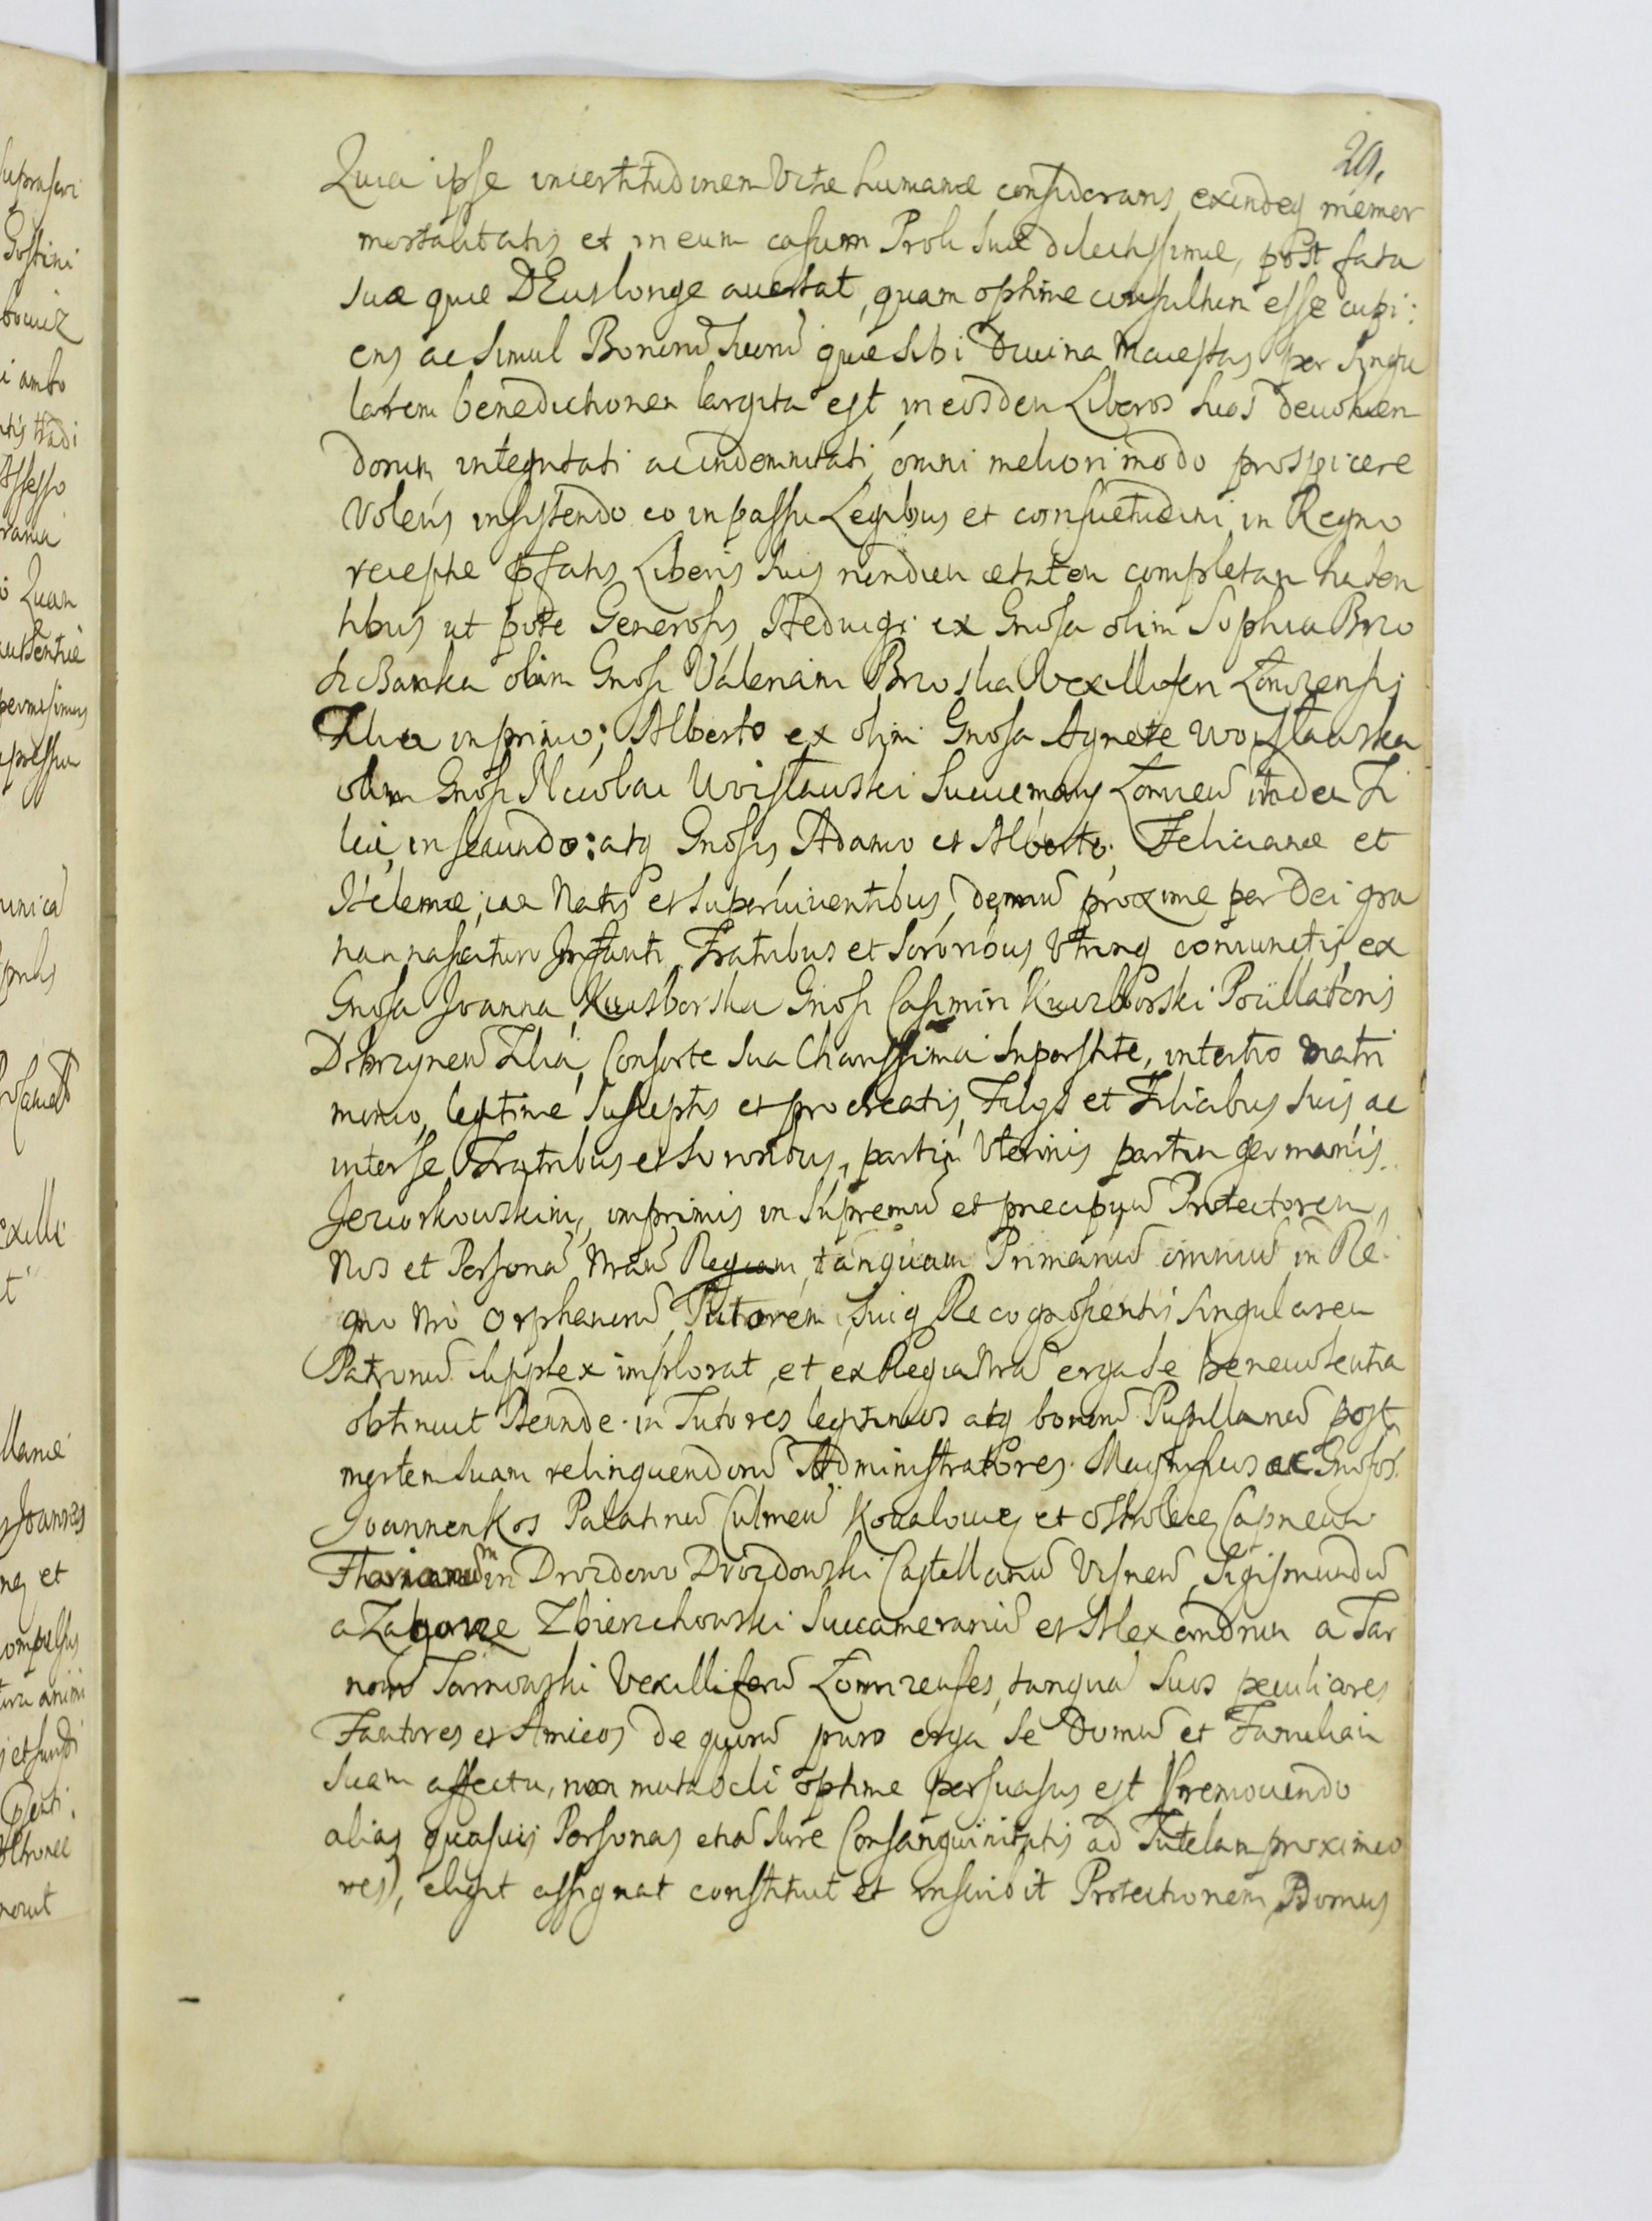 29.
Quia ipse incertitudinem Vitæ humanæ considerans, exindeq memor
mortalitatis et in eum casum Proli suæ dilectissimæ, post fata
sua quæ DEus longe auertat, quam optime consultum esse cupi:
ens ac simul Bonorũ suorũ quæ sibi Diuina Maiestas per singu
larem benedictionem largita est, in eosdem Liberos suos deuoluen
dorum integritati ac indemnitati, omni meliori modo prospicere
Volens insistendo eo in passu Legibus et consuetudini in Regno
receptæ pfatis Liberis suis nondum ætatem completam haben
tibus ut pote Generosis Heduigi ex Gnosa olim Sophia Brzo
olim Gnosi Valeriani Brzoska Vexilliferi Łomzensis
Filia in primo; Alberto ex olim Gnosa Agnete Woysławska
olim Gnosi Nicolai Woysławski Succamerarij Łomzen̄ itidem Fi
lia, in secundo: atq Gnosis Adamo et Alberto, Felicianæ et
Helenæ, iam Natis et superuiuentibus, demũ proxime per Dei gra
tiam nascituro Infanti, Fratribus et Sororibus Utrinq coniunctis, ex
Gnosa Joanna Kuczborska Gnosi Casimiri Kuczborski Pocillatoris
Dobrzynen̄ Filia, Consorte sua Charissima superstite, in tertio matri
monio, legitime susceptis et procreatis, Filijs et Filiabus suis, ac
inter se Fratribus et Sororibus, partim Uterinis partim germanis
Jeziorkowskim, imprimis in Supremũ et precipuũ Protectorem,
Nos et Personã Nrãm Regiam, tanquam Primariũ omniũ in Re
gno Nrõ Orphanorũ Tutorem, suiq Recognoscentis singularem
Patronũ supplex implorat, et ex Regia Nrã erga se beneuolentia
obtinuit Deinde in Tutores legitimos atq bonorũ Pupillariũ post
mortem suam relinquendorũ Administratores. Magnificos ac Gnosos
Joannem Kos Palatinũ Culmen̄ Kowalouien̄ et Ostrolecen̄ Capneum
in Drozdowo Drozdowski Castellanũ Visnen̄, Sigismundũ
a Zaborze Zbierzchowski Succamerariũ et Alexandrum a Tar
nowo Tarnowski Vexilliferũ Łomzenses, tanquã suos peculiares
Fautores et Amicos de quorũ puro erga se Domũ et Familiam
suam affectu, non mutabili optime persuasus est (remouendo
alias quasuis Personas etiã Jure Consanguinitatis ad Tutelam proximio
res), eligit assignat constituit et inscribit Protectionem, Domus